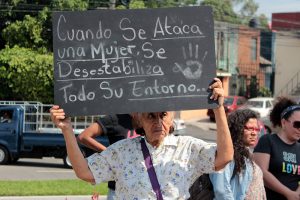 Cuando Se Ataca
una Mujer, Se
Desestabiliza
Todo Su Entorno.